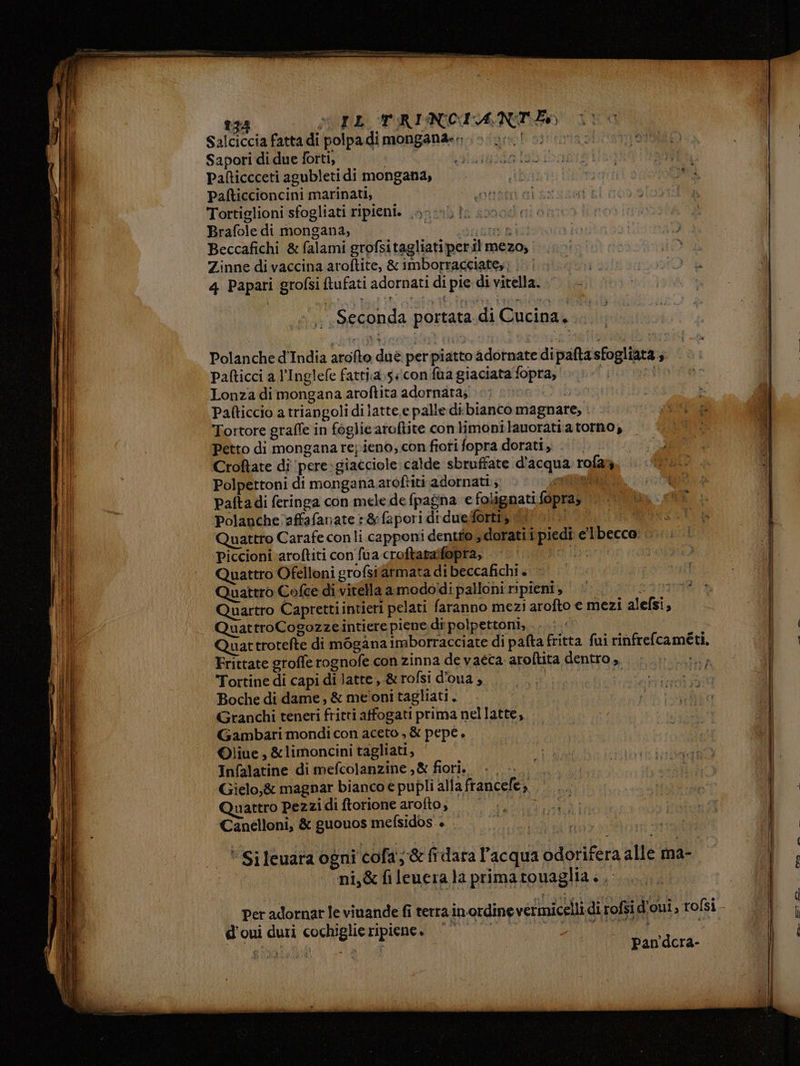 134 IL TRINCIANTE
Salciccia fatta di polpa di mongana.
Sapori di due ſorti,
Paſticcceti agubleti di mongana,
Paſticcioncini marinati,
Tortiglioni sfogliati ripieni.
Braſole di mongana,
Beccafichi & ſalami groſsi tagliati per il mezo,
Zinne di vaccina aroſtite, & imborracciate,
4 Papari groſsi ſtufati adornati di pie di vitella.
Seconda portata di Cucina.
Polanche d'India aroſto due per piatto adornate di paſta sfogliata,
Paſticci a l'Ingleſe fatti a 5. con ſua giaciata ſopra,
Lonza di mongana aroſtita adornata,
Paſticcio a triangoli di latte e palle di bianco magnare,
Tortore graſſe in foglie aroſtite con limoni lauorati a torno,
Petto di mongana re; ieno, con fiori ſopra dorati,
Croſtate di pere giacciole calde sbruffate d'acqua roſa,
Polpettoni di mongana aroſtiti adornati,
Paſta di ſeringa con mele de ſpagna e folignati ſopra,
Polanche affaſanate: & ſapori di due ſorti,
Quattro Carafe con li capponi dentro, dorati i piedi e'l becco
Piccioni aroſtiti con ſua croſtata ſopra,
Quattro Ofelloni groſsi armata di beccafichi.
Quattro Coſce di vitella a modo di palloni ripieni,
Quartro Capretti intieri pelati faranno mezi aroſto e mezi aleſsi,
Quattro Cogozze intiere piene di polpettoni,
Quattro teſte di mõgana imborracciate di paſta fritta fui rinfreſcaméti,
Frittate groſſe rognoſe con zinna de vacca aroſtita dentro,
Tortine di capi di latte, & roſsi d'oua,
Boche di dame, & me oni tagliati.
Granchi teneri fritti affogati prima nel latte,
Gambari mondi con aceto, & pepe.
Oliue, & limoncini tagliati,
Inſalatine di meſcolanzine, & fiori.
Gielo, & magnar bianco e pupli alla franceſe,
Quattro Pezzi di ſtorione aroſto,
Canelloni, & guouos meſsidos.
Si leuara ogni coſa; & ſi dara l'acqua odorifera alle ma-
ni, & ſi leuera la prima touaglia.
Per adornar le viuande ſi terra in ordine vermicelli di roſsi d'oui, roſsi
d'oui duri cochiglie ripiene.
Pan'dora-